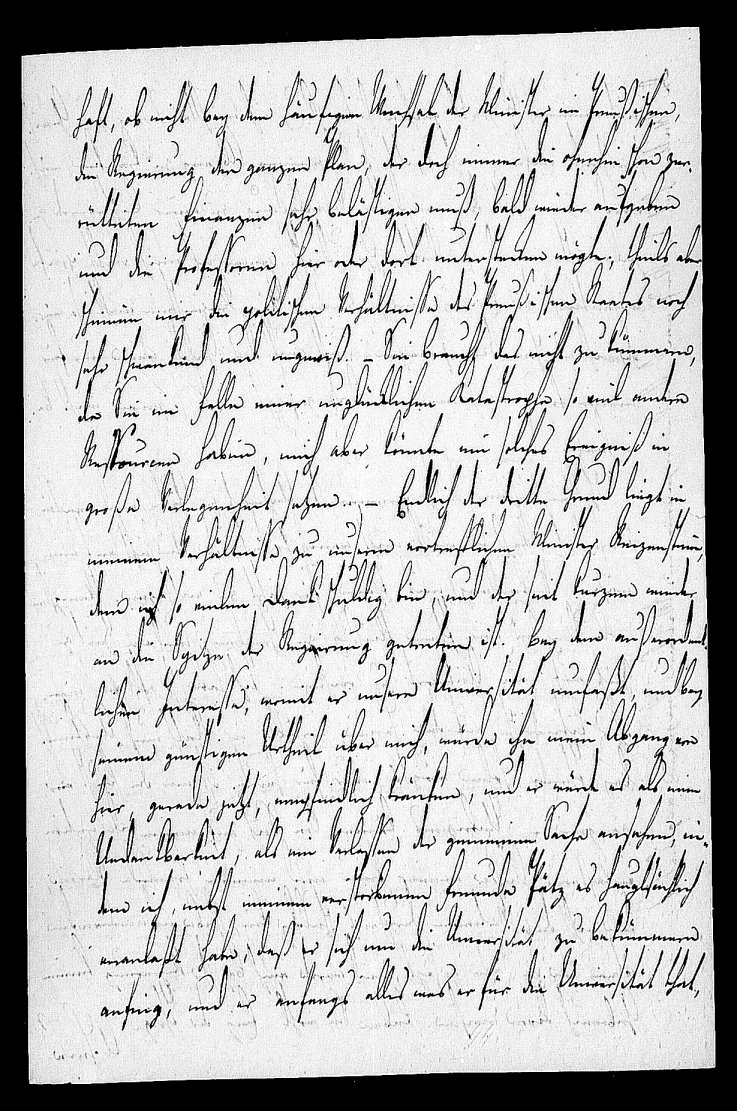 haft, ob nicht bey dem häufigen Wechsel der Minister im Preußischen,
die Regierung den ganzen Plan, der doch immer die ohnehin schon zer-
rütteten Finanzen sehr belästigen muß, bald wieder aufgeben
und die Professoren hier oder dort unterstecken mögte; theils aber
scheinen mir die politischen Verhältnisse des Preußischen Staates noch
sehr schwankend und ungewiß. – Sie braucht das nicht zu kümmern,
da Sie im Falle einer unglücklichen Katastrophe so viel andere
Ressourcen haben, mich aber könnte ein solches Ereigniß in
große Verlegenheit setzen. – Endlich der dritte Grund liegt in
meinem Verhältnisse zu unserm vortrefflichen Minister Reizenstein,
dem ich so vielen Dank schuldig bin, und der seit kurzem wieder
an die Spitze der Regierung getreten ist. Bey dem außerordent-
lichen Interesse, womit er unsere Universität umfaßt, und bey
seinem günstigen Urtheil über mich, würde ihn mein Abgang von
hier, gerade jetzt, empfindlich kränken, und er würde es als eine
Undankbarkeit, als ein Verlassen der gemeinen Sache ansehen, in-
dem ich, nebst meinem verstorbenen Freunde Pätz es hauptsächlich
veranlaßt habe, daß er sich um die Universität zu bekümmern
anfing, und er anfangs alles was er für die Universität that,